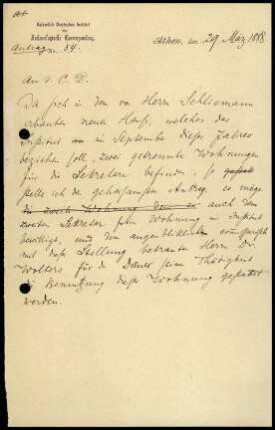 Kaiserlich Deutsches Institut
für
Archaeologische Correspondenz.
Antrag no. 54.
Athen, den 29 März 1888
An d. C. D.
Da sich in dem von Herrn Schliemann
erbauten neuen Hause, welches das
Institut nun im September dieses Jahres
beziehen soll, zwei getrennte Wohnungen
für die Sekretare befinden, so
stelle ich den gehorsamsten Antrag, es möge
die zweite Wohnung auch dem
zweiten Sekretar freie Wohnung im Institut
bewilligt, und dem augenblicklich commissarisch
mit dieser Stellung betrauten Herrn Dr.
Wolters für die Dauer seiner Thätigkeit
die Benutzung dieser Wohnung gestattet
werden.